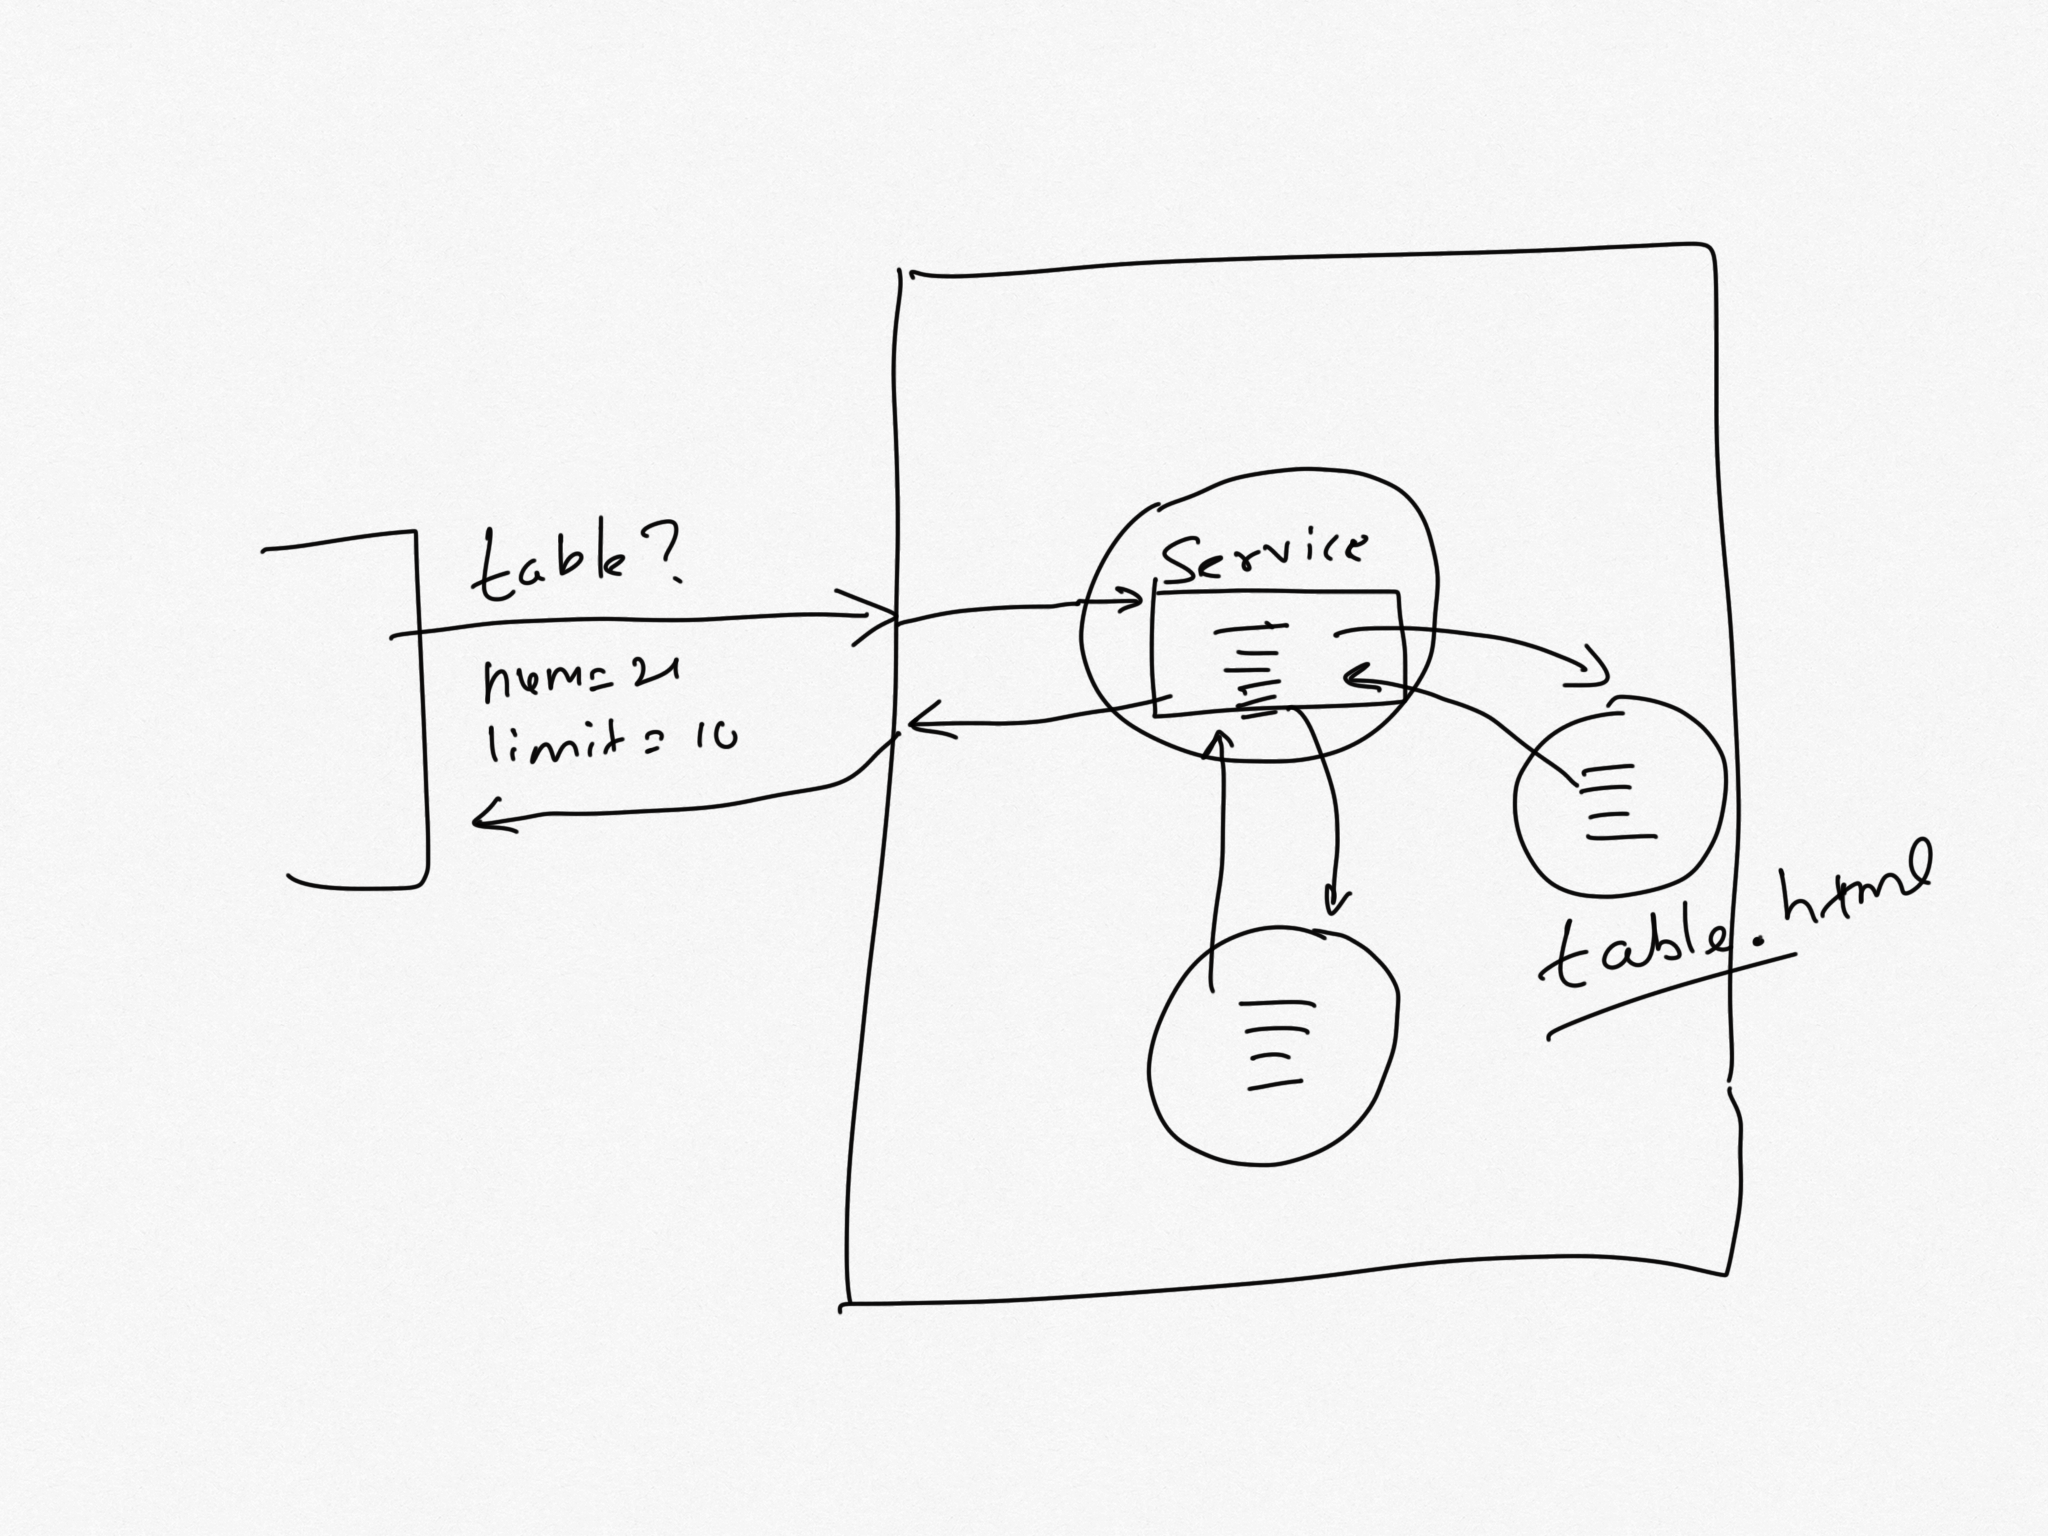 table?
num= 21
limit= 10
Service
table.html